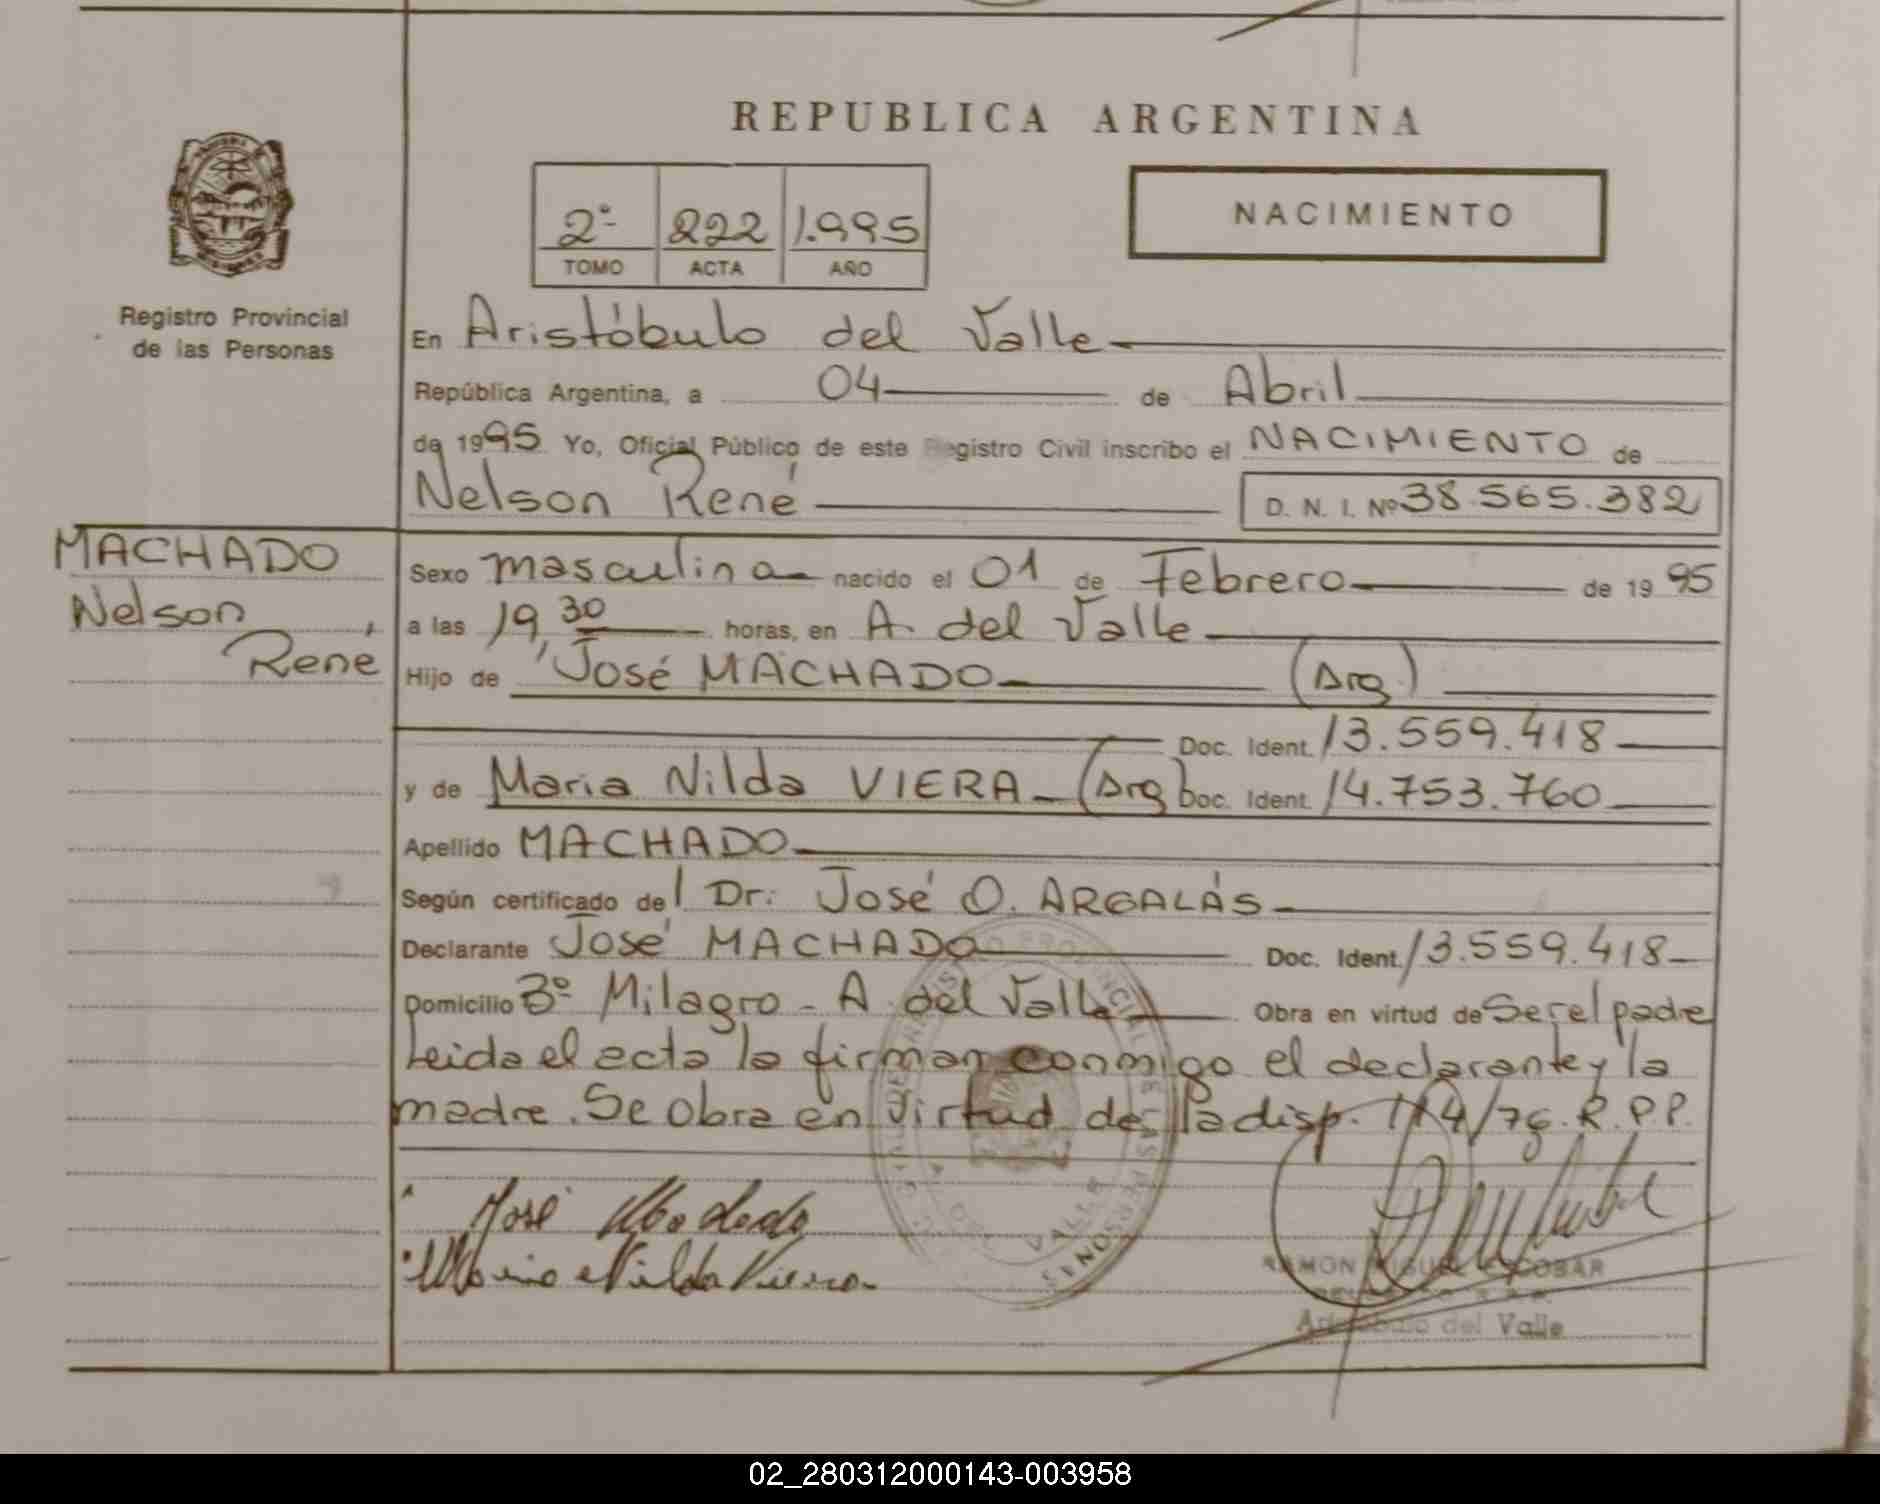 REPUBLICA ARGENTINA
2º 222 1.995
TOMO ACTA AÑO
NACIMIENTO
Registro Provincial
de las Personas
En Aristóbulo del Valle
República Argentina, a 04 de Abril
de 1995 Yo, Oficial Público de este Registro Civil inscribo el NACIMIENTO de
Nelson René D. N. I. Nº 38.565.382
MACHADO
Nelson
René
Sexo masculino nacido el 01 de Febrero de 1995
a las 19,30 horas, en A. del Valle
Hijo de José MACHADO (Arg)
Doc. Ident. 13.559.418
y de Maria Nilda VIERA (Arg) Doc. Ident. 14.753.760
Apellido MACHADO
Según certificado del Dr: José O. ARGALÁS
Declarante José MACHADO Doc. Ident. 13.559.418
Domicilio Bº Milagro - A. del Valle Obra en virtud de Ser el padre
Leida el acta la firman conmigo el declarante y la
madre. Se obra en virtud de la disp. 114/79. R.P.P.
José Machado
Maria Nilda Viera
RAMON MIGUEL ESCOBAR
Aristóbulo del Valle
02_280312000143-003958